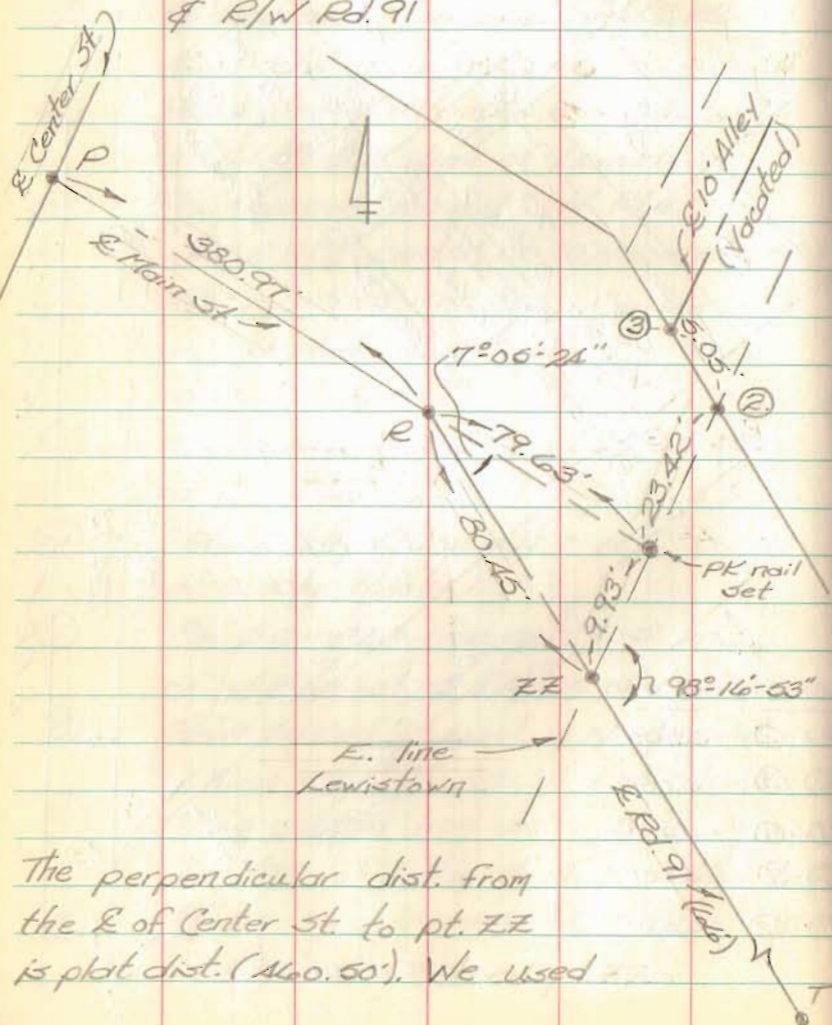 ⅊ R/W Rd. 91
℄ Center St.
P
℄ Main St.
380.97'
℄ 10' Alley
(Vacated)
③
5.05'
②
7°-06'-24"
R
79.63'
80.45'
23.42'
PK nail
set
9.93'
ZZ
98°-16'-53"
E. line
Lewistown
℄ Rd. 91 (66')
T
The perpendicular dist. from
the ℄ of Center St. to pt. ZZ
is plat dist. (460.50'). We used